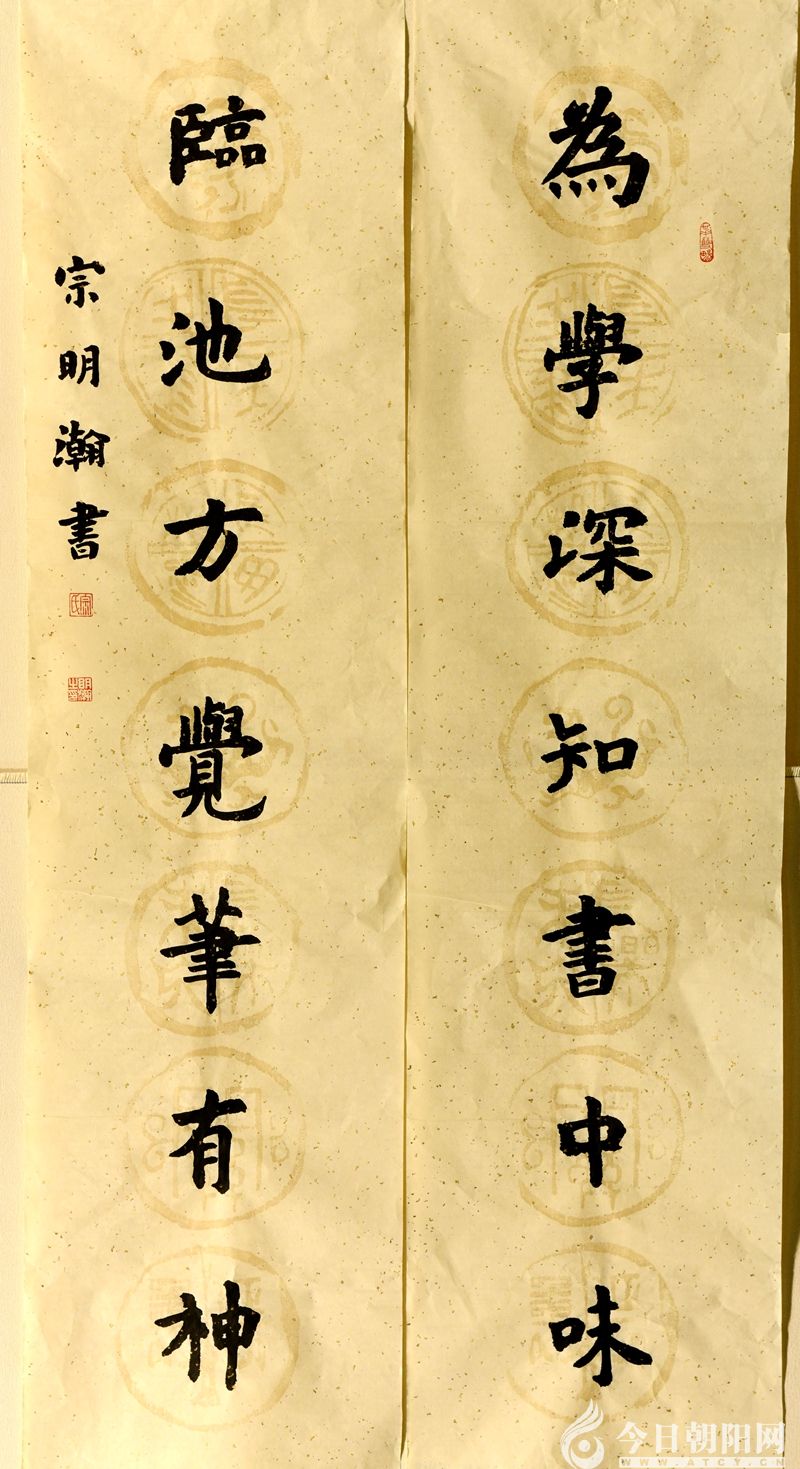 為學深知書中味
臨池方覺筆有神
宗明瀚書
宗氏
今日朝阳网
WWW.ATCY.CN